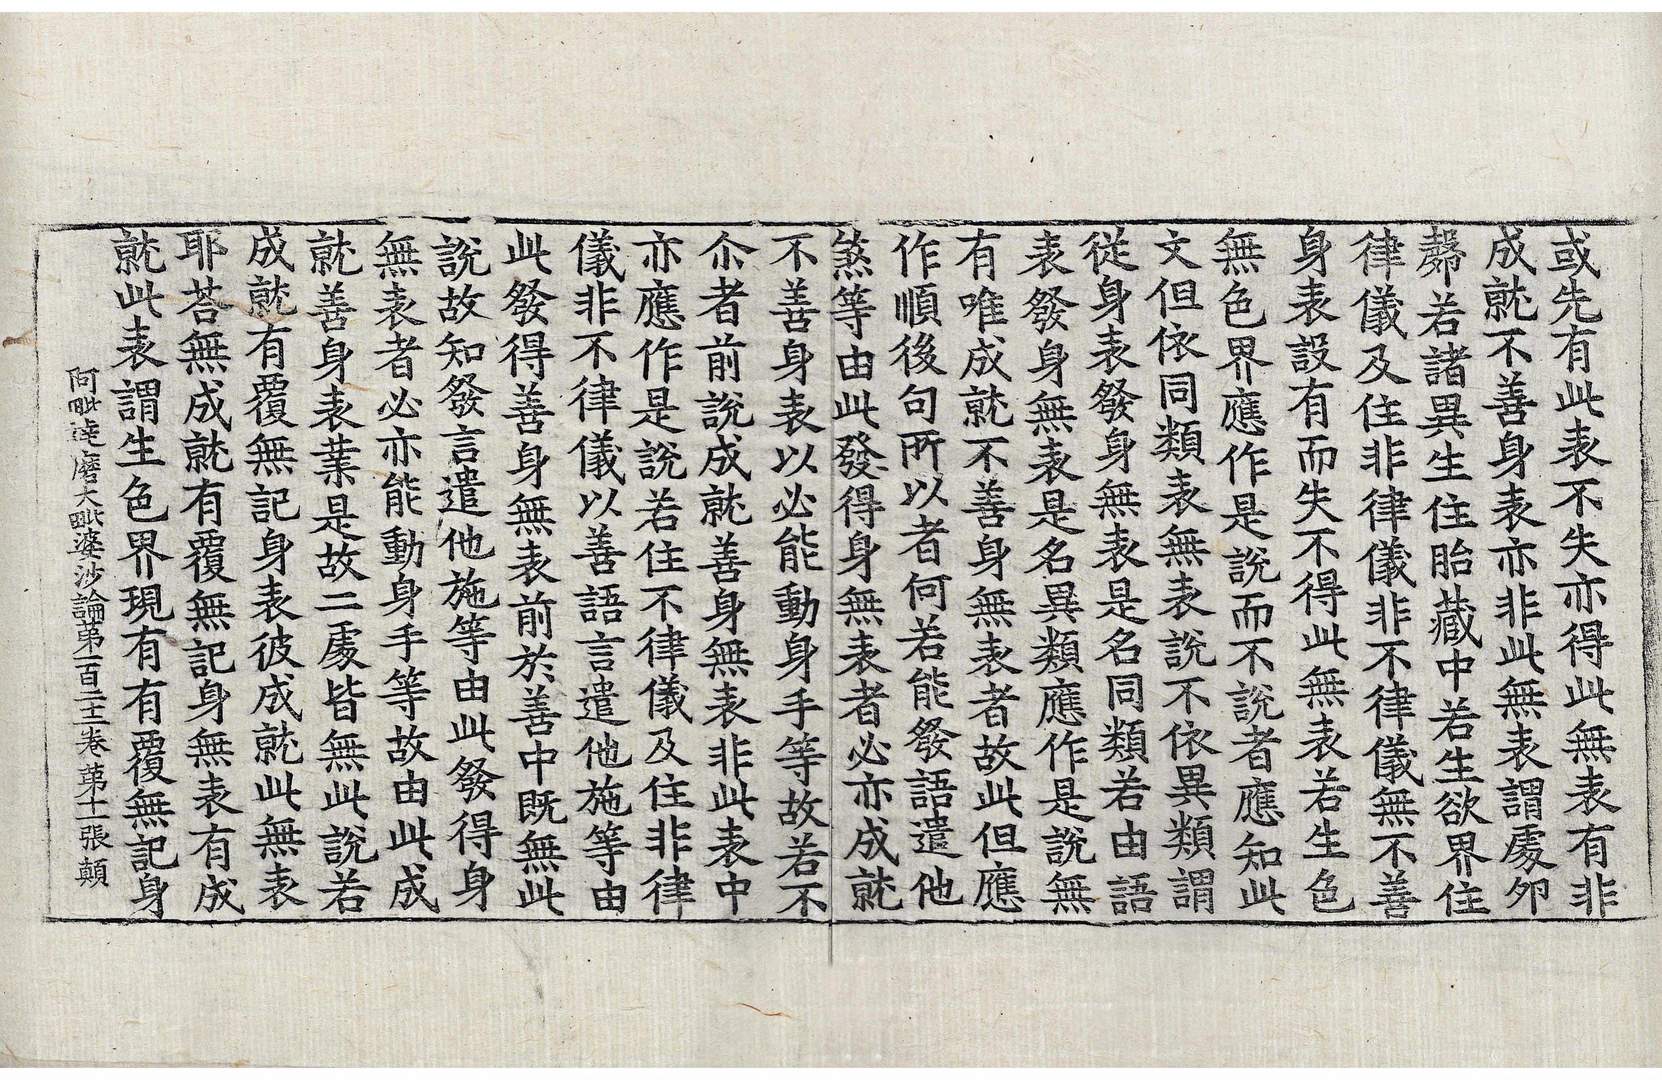 或先有此表不失亦得此無表有非
成就不善身表亦非此無表謂處夘
㲉若諸異生住胎藏中若生欲界住
律儀及住非律儀非不律儀無不善
身表設有而失不得此無表若生色
無色界應作是說而不說者應知此
文但依同類表無表說不依異類謂
從身表發身無表是名同類若由語
表發身無表是名異類應作是說無
有唯成就不善身無表者故此但應
作順後句所以者何若能發語遣他
煞等由此發得身無表者必亦成就
不善身表以必能動身手等故若不
尒者前說成就善身無表非此表中
亦應作是說若住不律儀及住非律
儀非不律儀以善語言遣他施等由
此發得善身無表前於善中既無此
說故知發言遣他施等由此發得身
無表者必亦能動身手等故由此成
就善身表業是故二處皆無此說若
成就有覆無記身表彼成就此無表
耶荅無成就有覆無記身無表有成
就此表謂生色界現有有覆無記身
阿毗達磨大毗婆沙論第一百二十二卷 第十一張 顛